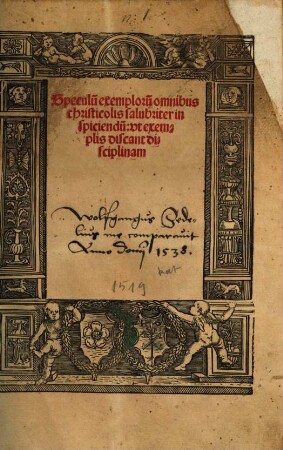 Speculū exemplorū omnibus
christicolis salubriter in
spiciendū: vt exem⸗
plis discant di⸗
sciplinam
Wolfgangus Sede⸗
lius me comparavit
Anno domj 1538.
1519